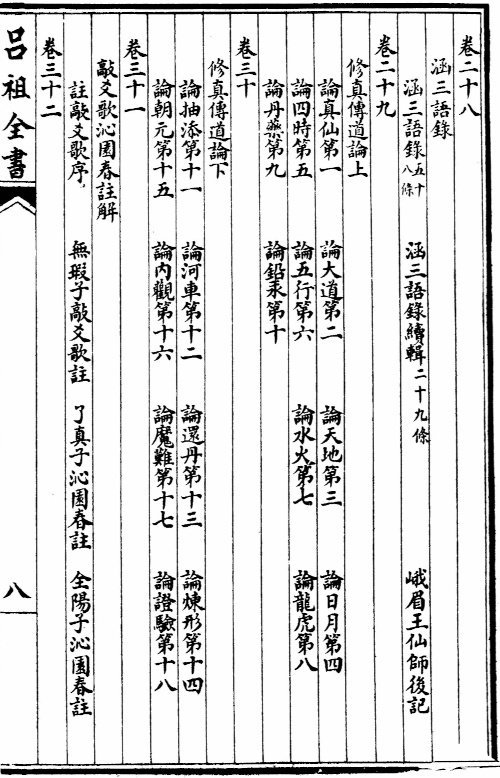 卷二十八
涵三語錄
涵三語錄五十八條 涵三語錄續輯二十九條 峨眉王仙師後記
卷二十九
修真傳道論上
論真仙第一 論大道第二 論天地第三 論日月第四
論四時第五 論五行第六 論水火第七 論龍虎第八
論丹藥第九 論鉛汞第十
卷三十
修真傳道論下
論抽添第十一 論河車第十二 論還丹第十三 論煉形第十四
論朝元第十五 論內觀第十六 論魔難第十七 論證驗第十八
卷三十一
敲爻歌沁園春註解
註敲爻歌序 無瑕子敲爻歌註 了真子沁園春註 全陽子沁園春註
卷三十二
呂祖全書
八